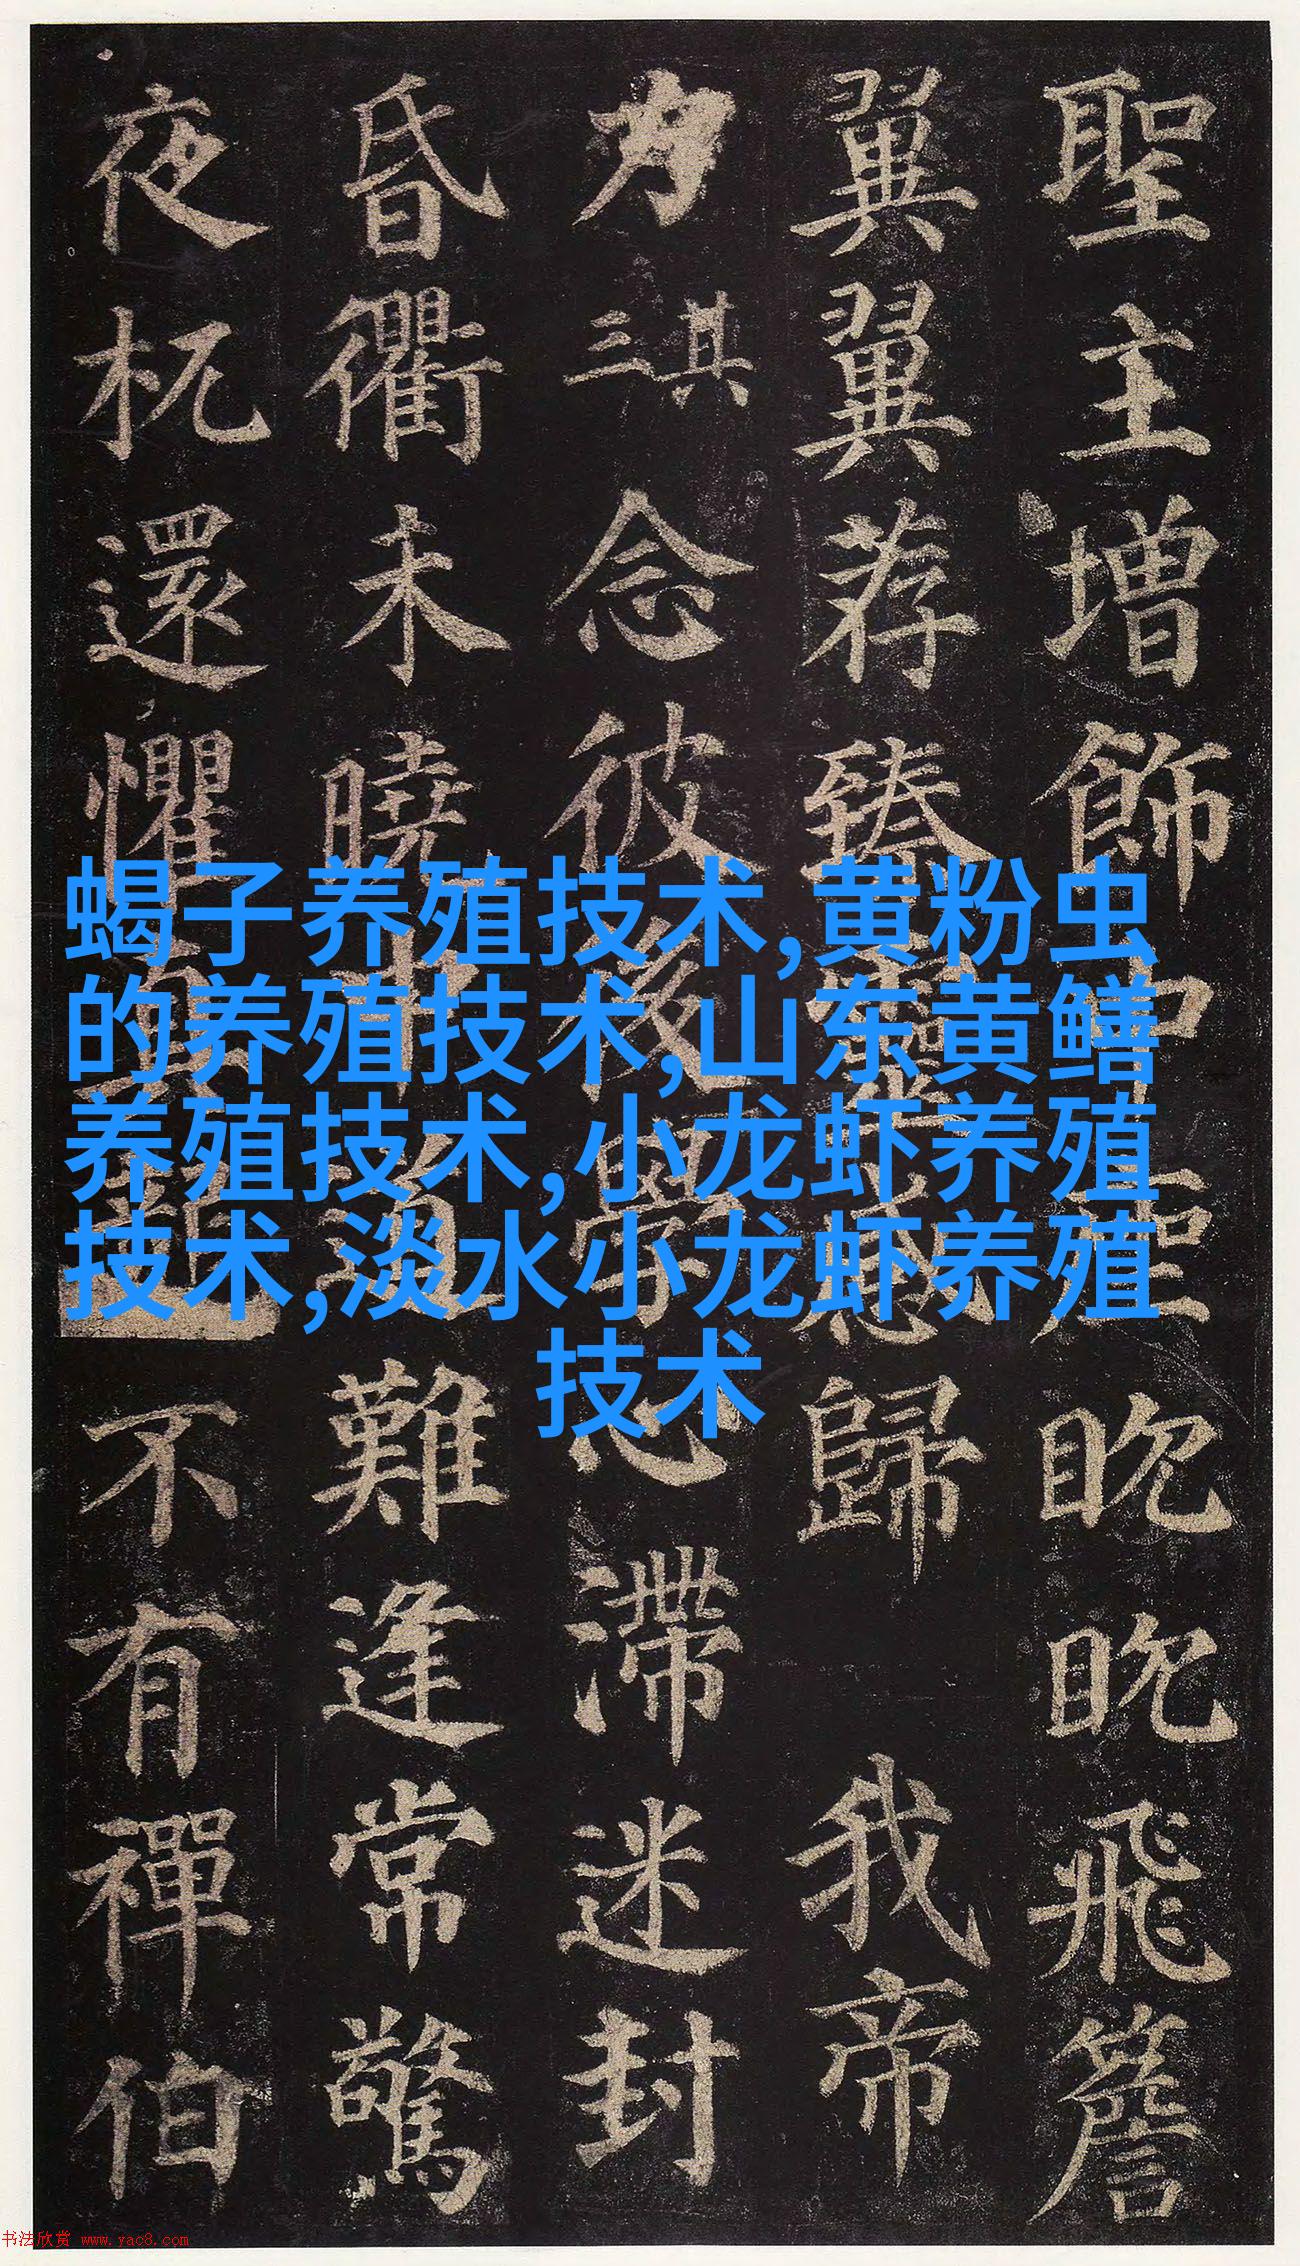 聖主增飾中眈眈飛簷
翼翼荐臻歸 我帝
力 其三 念彼後學心滯迷封
昏衢未曉中道難逢常驚
夜杌還懼真龍不有禪伯
蝎子养殖技术,黄粉虫
的养殖技术,山东黄鳝
养殖技术,小龙虾养殖
技术,淡水小龙虾养殖
技术
书法欣赏 www.yac8.com